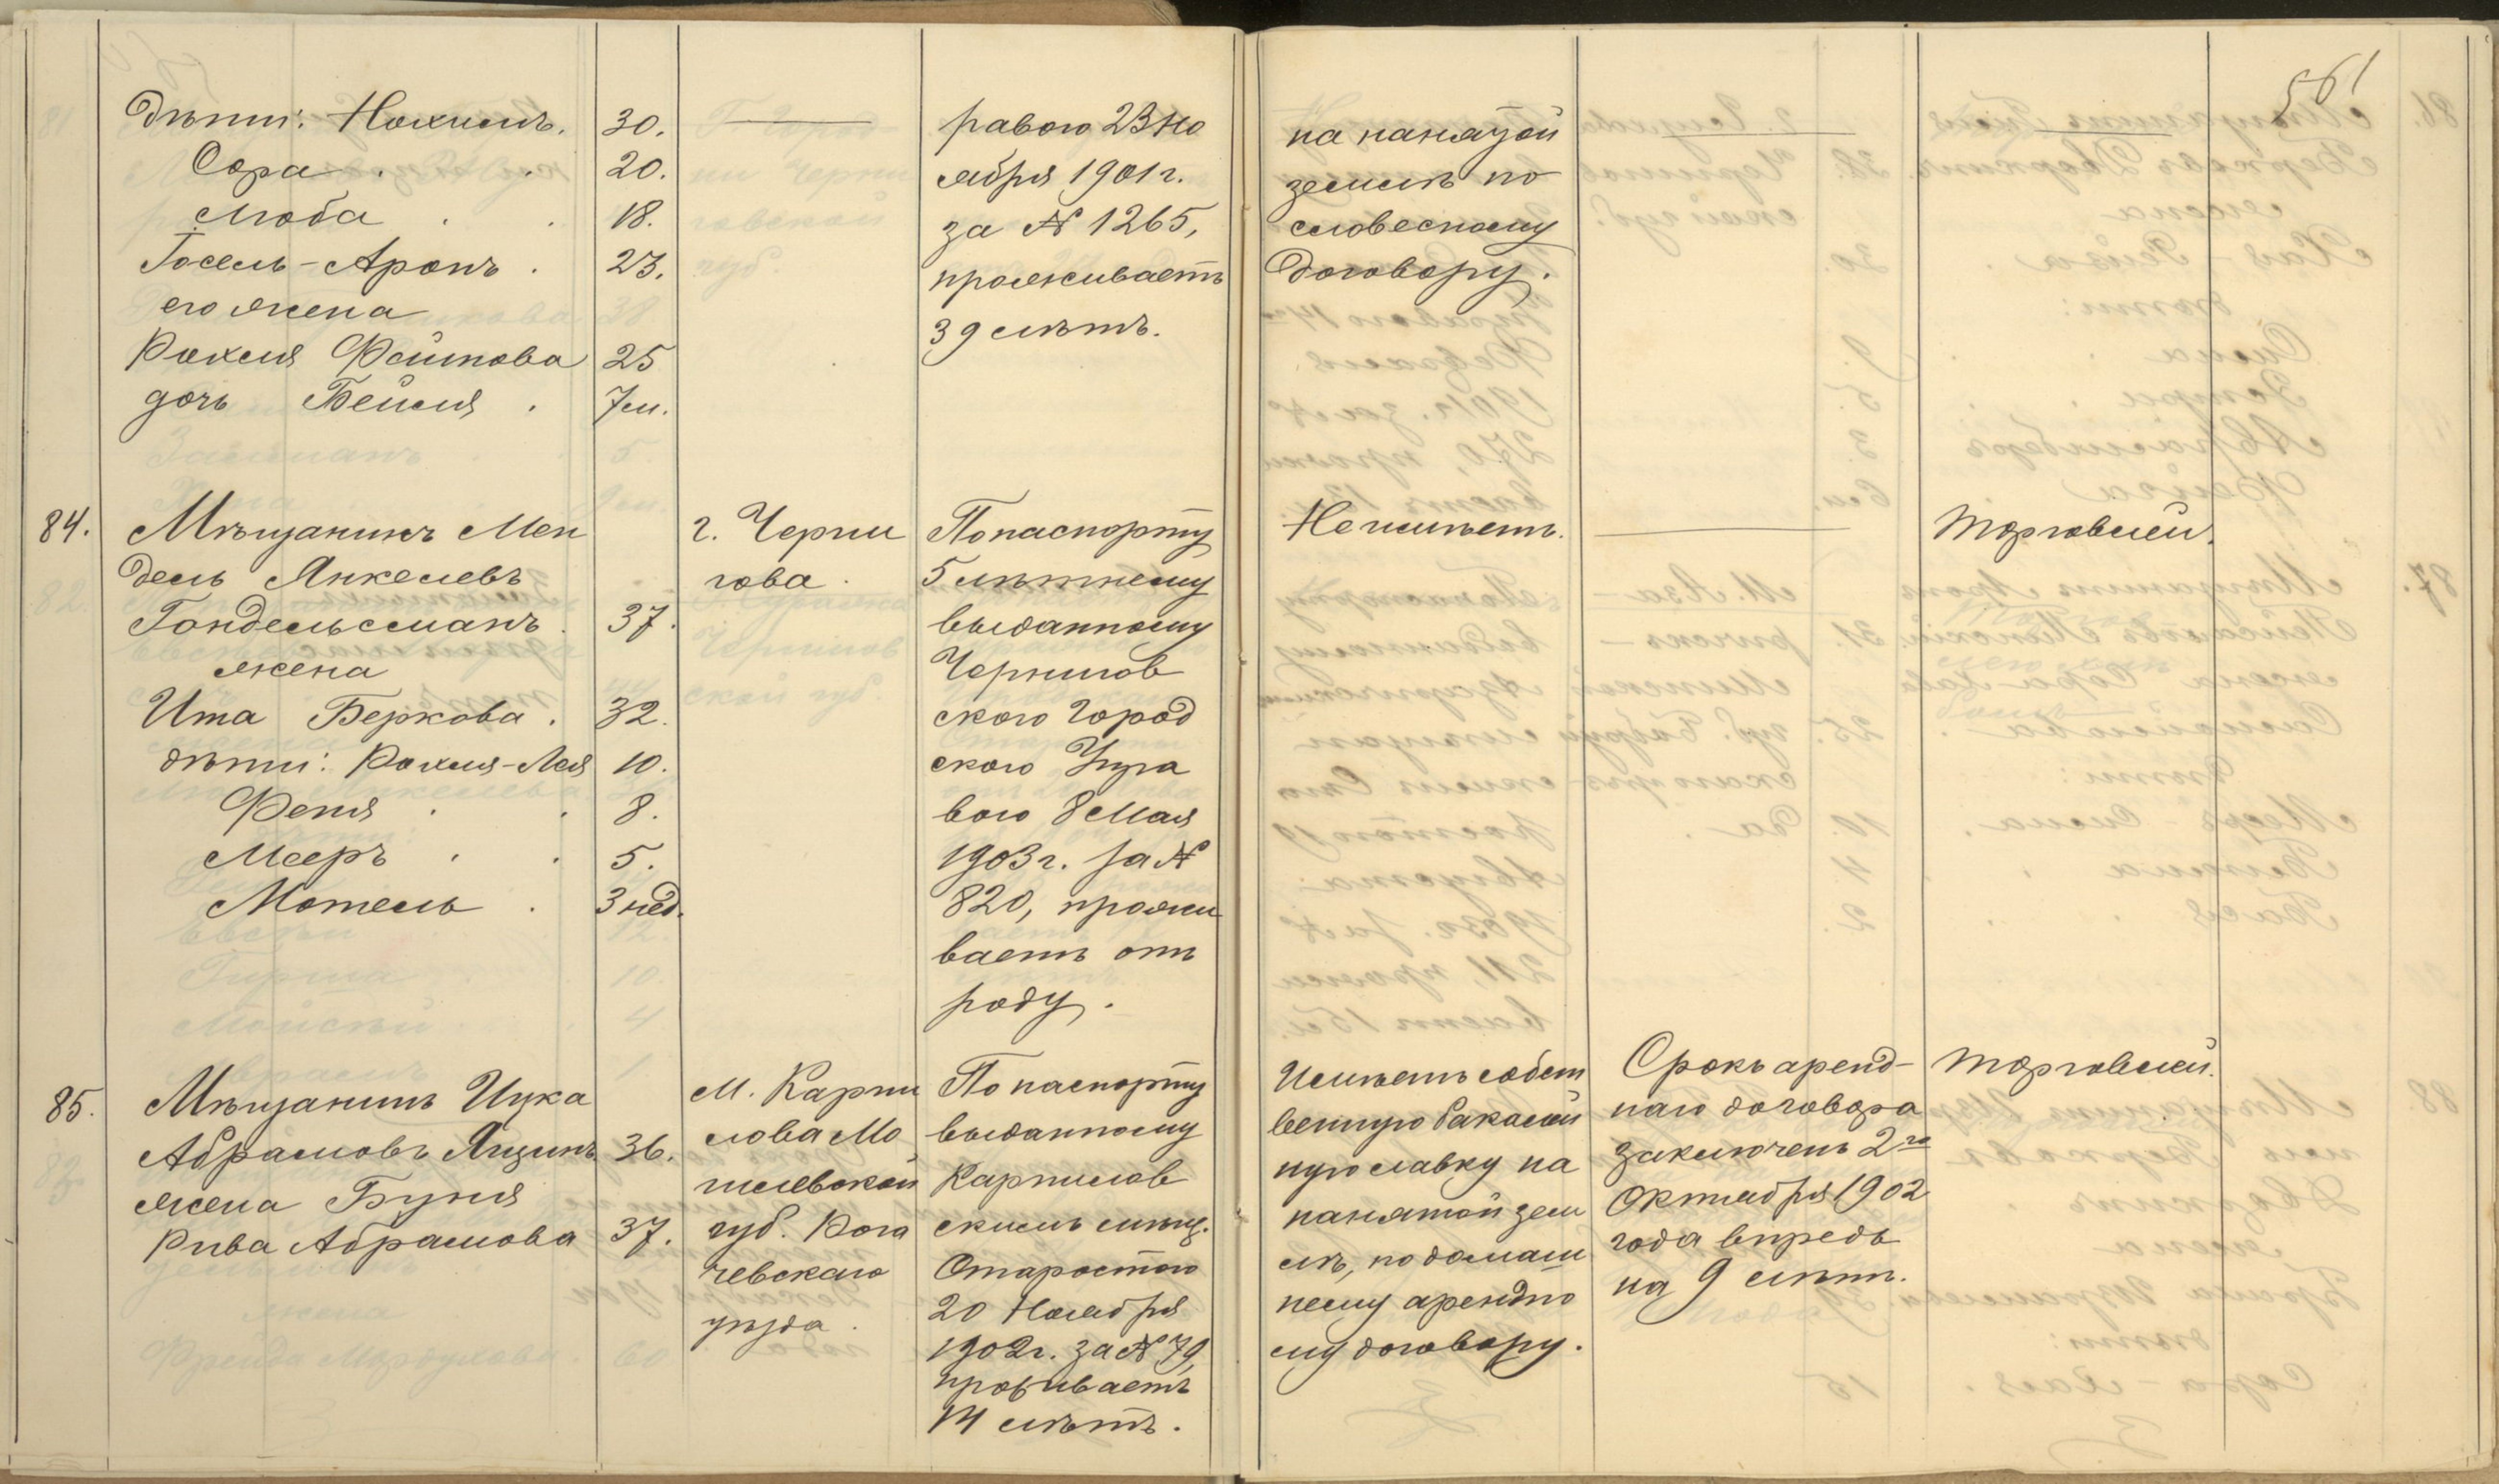 561
Дѣти: Нохимъ. 30.
Сора . . 20.
Люба . . 18.
Іосель-Аронъ . 23.
его жена
Рохля Фейтова 25
дочь Бейля . 7 м.
равою 23 Но
ября 1901 г.
за № 1265,
проживаетъ
39 лѣтъ.
на нанятой
землѣ по
словесному
договору.
84. Мѣщанинъ Мен
дель Янкелевъ
Гондельсманъ . 37.
жена
Ита Беркова . 32.
дѣти: Рохля-Лея 10.
Феня . . 8.
Мееръ . . 5.
Мотель . 3 нед.
г. Черни
гова.
По паспорту
5 лѣтнему
выданному
Чернигов
ского Город
ского Упра
вою 8 Мая
1903 г. за №
820, прожи
ваетъ отъ
роду.
Не имѣетъ.
Торговлей.
85. Мѣщанинъ Ицка
Абрамовъ Ящинъ 36.
жена Буня
Рива Абрамова 37.
М. Карпи
лова Мо
гилевской
губ. Рога
чевскаго
уѣзда.
По паспорту
выданному
Карпилов
скимъ мѣщ.
Старостою
20 Ноября
1902 г. за № 79,
проживаетъ
14 лѣтъ.
Имѣетъ собст
венную бакалей
ную лавку на
нанятой зем
лѣ, по домаш
нему арендно
му договору.
Срокъ аренд-
наго договора
заключенъ 2го
Октября 1902
года впредь
на 9 лѣтъ.
Торговлей.